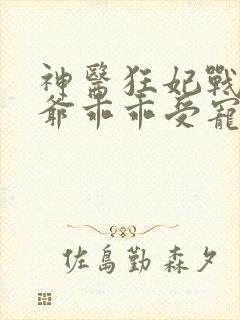 神醫狂妃戰
爺乖乖受寵
佐島勤 森夕